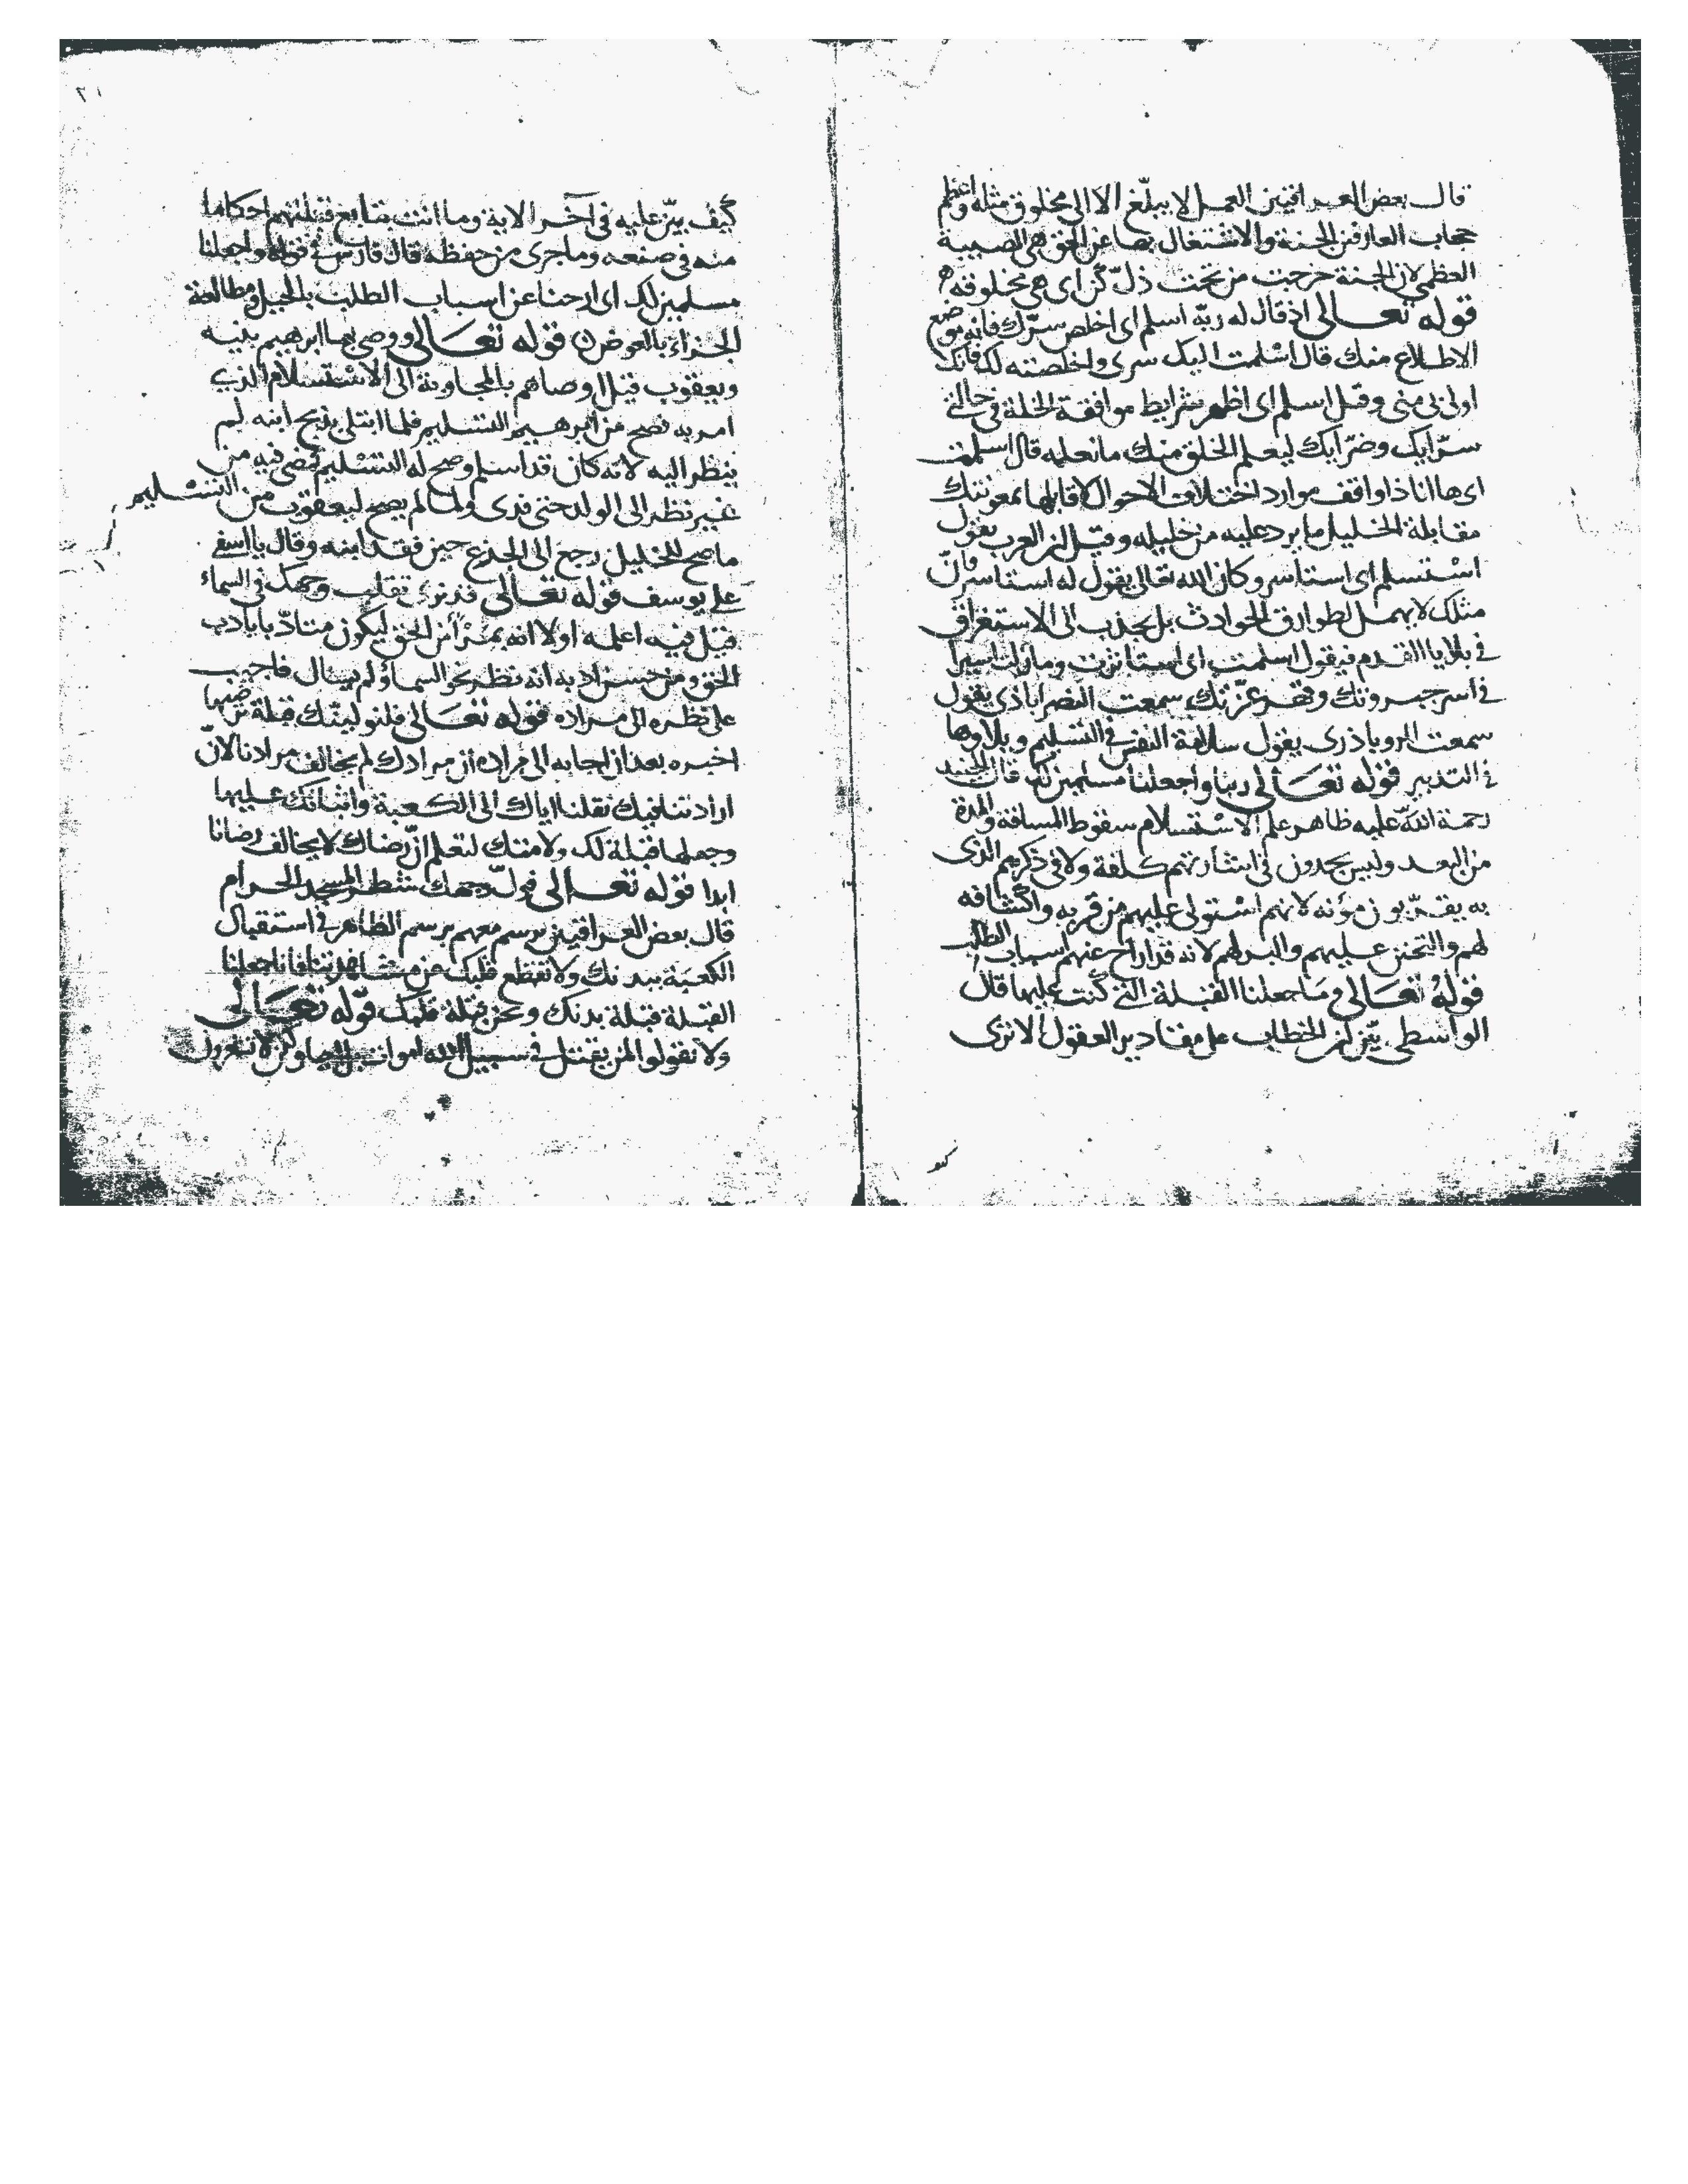 قال بعض العراقيين العمل لا يبلغ الا الى مخلوق مثله واعظم
حجاب العارفين الجنة والاشتغال بها عن الحق هي المصيبة
العظمى لان الجنة خرجت من تحت ذل كن اى هى مخلوقه
قوله تعالى اذ قال له ربه اسلم اى اخلص سرك فانه موضع
الاطلاع منك قال اسلمت اليك سرى واخلصته لك فانك
اولى بى منى وقيل اسلم اى اظهر شرايط موافقة الخلة في حالتي
سرايك وضرايك ليعلم الخلق منك ما نعلمه قال اسلمت
اى ها انا ذا واقف موارد اختلاف الاحوال لاقابلها بمعونتك
مقابلة الخليل ما يرد عليه من خليله وقيل ان العرب تقول
استسلم اى استاسر وكان الله تعالى يقول له استاسر فان
مثلك لا يهمل لطوارق الحوادث بل يجذب الى الاستغراق
في بلايا القدم فيقول اسلمت اى استاثرت وما زلت اسيرا
في اسر جبروتك وقهر عزتك سمعت النصراباذى يقول
سمعت الروباذرى يقول سلامة النفس في التسليم وبلاوها
في التدبير قوله تعالى ربنا واجعلنا مسلمين لك قال الجنيد
رحمة الله عليه ظاهر علم الاستسلام سقوط المسافة والمدة
من البعد وليس يجدون في ايثارهم كلفة ولا في ذكرهم الذى
به يقربون مؤنه لانهم استولى عليهم من قربه واكتنافه
لهم والتحنن عليهم والبر لهم لانه قد اراح عنهم اسباب الطلب
قوله تعالى وما جعلنا القبلة التي كنت عليها قال
الواسطى بين ان الخطاب على مقادير العقول الا ترى
كيف بين عليه في آخر الاية وما انت بتابع قبلتهم احكاما
منه في صنعه وما جرى من حفظه قال فارس في قوله واجعلنا
مسلمين لك اى ارحنا عن اسباب الطلب بالحيل ومطالعة
الجزاء بالعوض قوله تعالى ووصى بها ابرهيم بنيه
ويعقوب قيل اوصاهم بالمجاوزة الى الاستسلام الذي
امر به فصح من ابرهيم التسليم فلما ابتلى بذبح ابنه لم
ينظر اليه لانه كان قد اسلم وصح له التسليم فمضى فيه من
غير نظر الى الولد حتى فدى ولما لم يصح ليعقوب من التسليم
ما صح للخليل رجع الى الجذع حين فقد ابنه وقال يا اسفي
على يوسف قوله تعالى قد نرى تقلب وجهك في السماء
قيل فيه اعلمه اولا انه بمرأى من الحق ليكون متادبا بادب
الحق ومن حسن ادبه انه نظر نحو السماء ولم يسال فاجيب
على نظره الى مراده قوله تعالى فلنولينك قبلة ترضيها
اخبره بعد ان اجابه الى مراده ان مرادك لم يخالف مرادنا لان
ارادتنا فيك نقلنا اياك الى الكعبة واثباتك عليها
وجعلها قبلة لك ولامتك لتعلم ان رضاك لا يخالف رضانا
ابدا قوله تعالى فول وجهك شطر المسجد الحرام
قال بعض العراقيين برسم معهم برسم الظاهر في استقبال
الكعبة ببدنك ولا تقطع قلبك عن مشاهدتنا فانا جعلنا
القبلة قبلة بدنك ونحن قبلة قلبك قوله تعالى
ولا تقولوا لمن يقتل في سبيل الله اموات بل احيا ولكن لا تشعرون